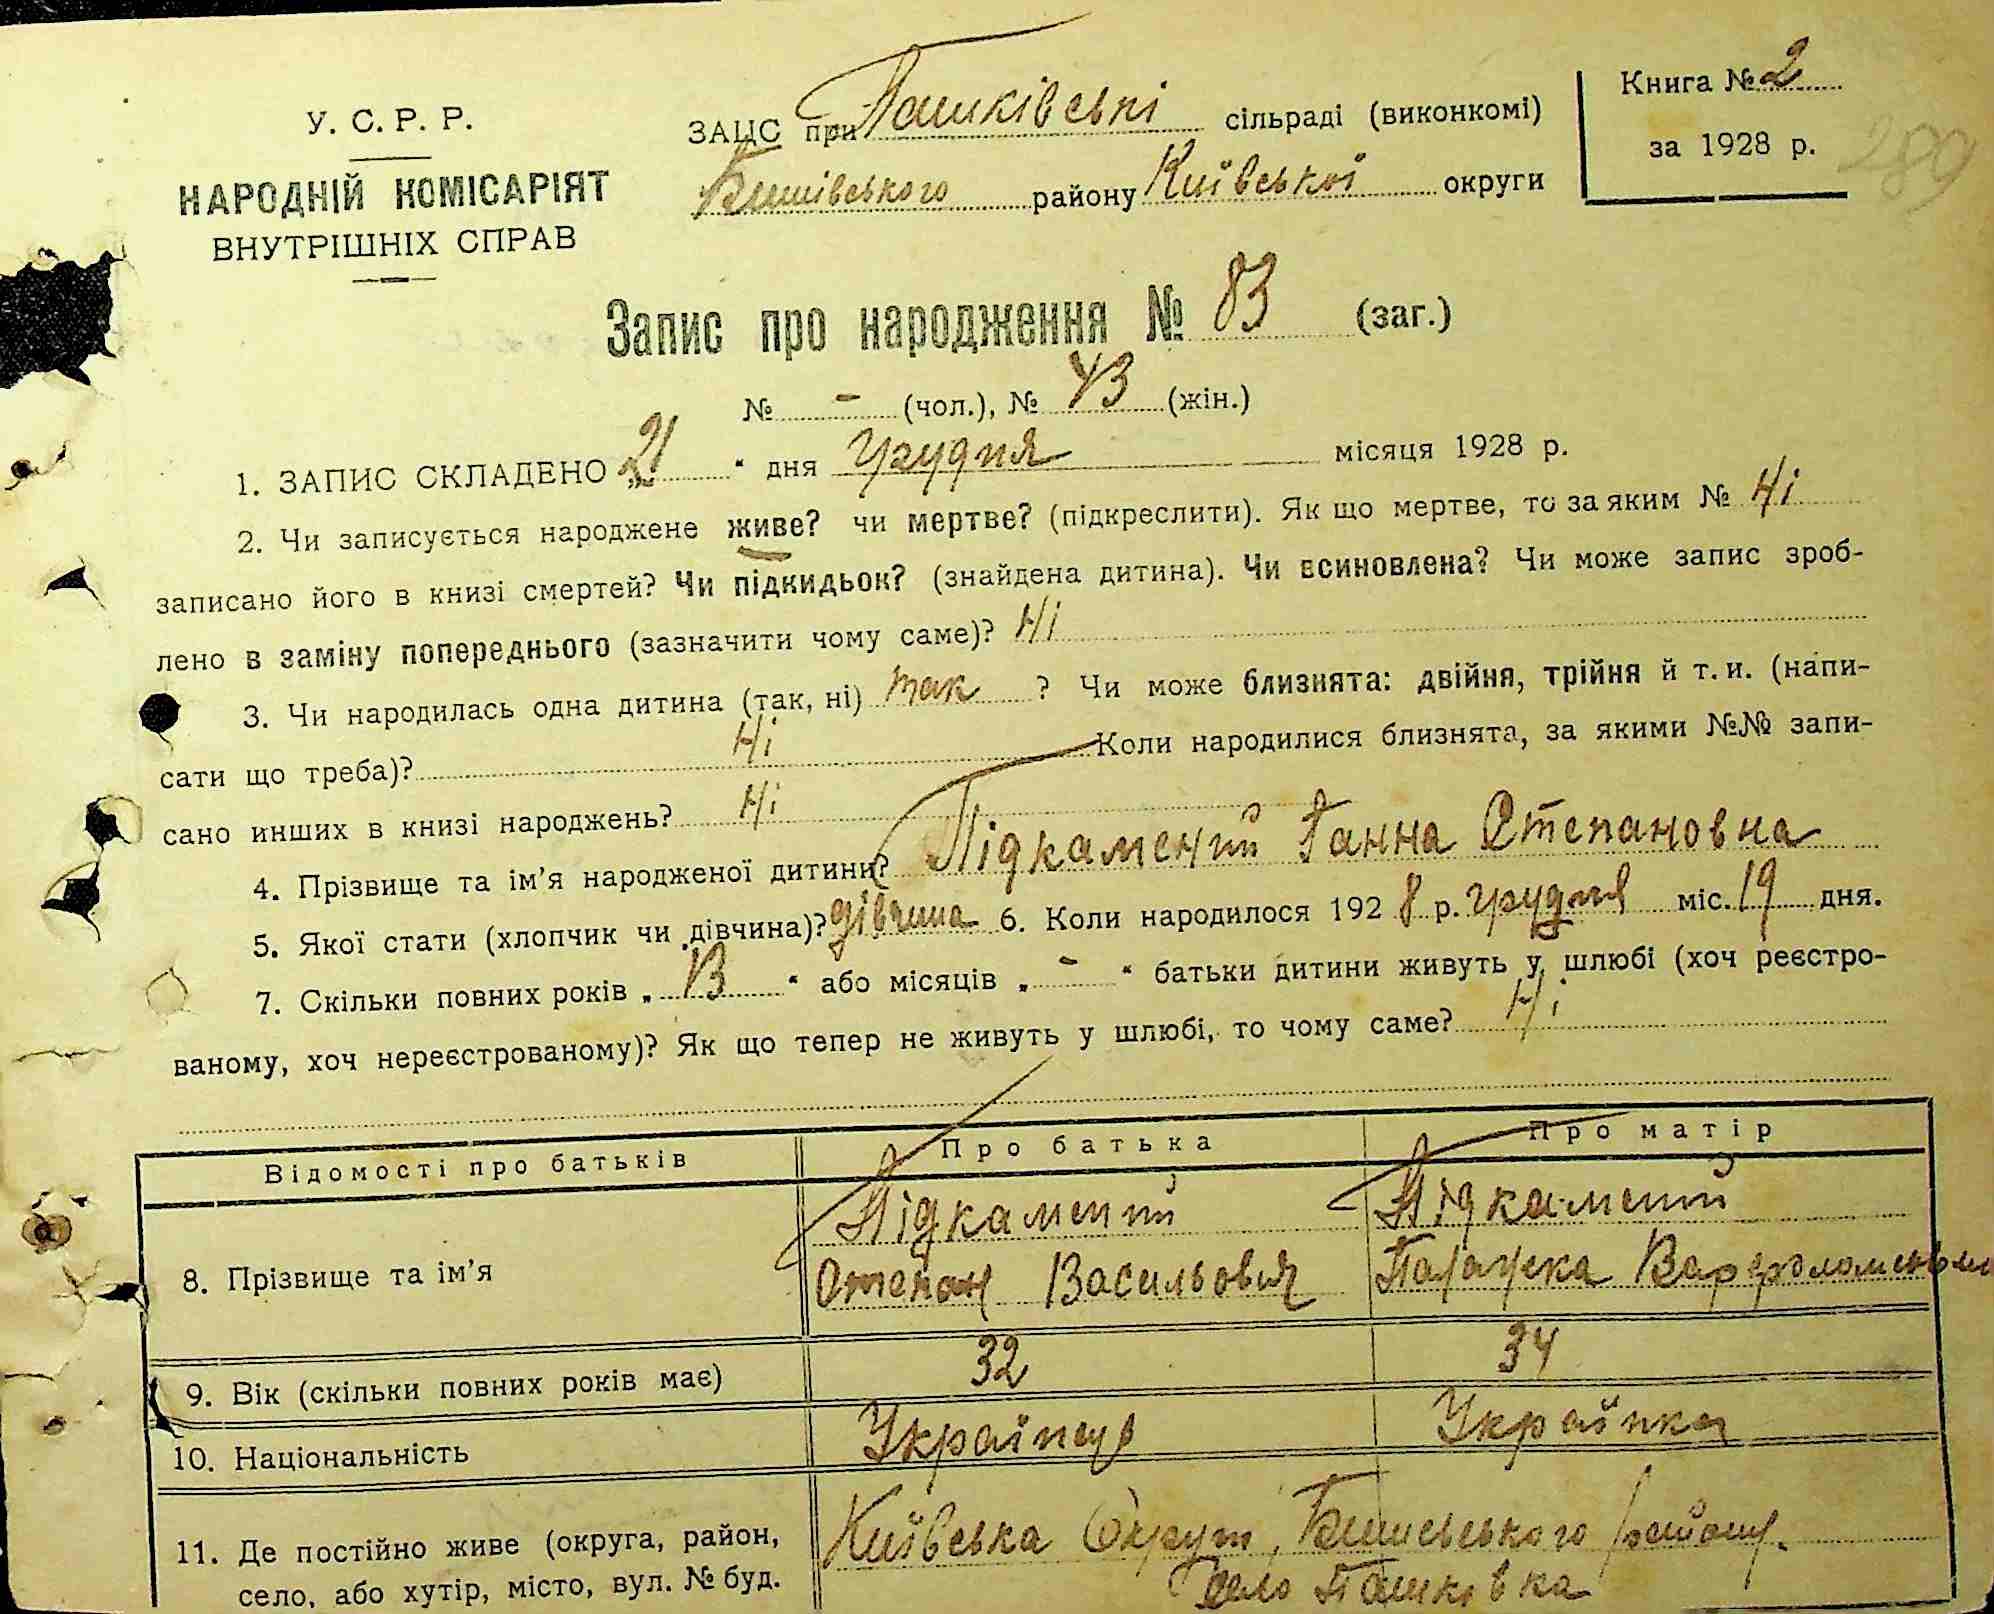 У. С. Р. Р.
НАРОДНІЙ КОМІСАРІЯТ
ВНУТРІШНІХ СПРАВ
ЗАЦС при Пашківські сільраді (виконкомі)
Бишівського району Київської округи
Книга № 2
за 1928 р.
289
Запис про народження № 83 (заг.)
№ - (чол.), № 43 (жін.)
1. ЗАПИС СКЛАДЕНО „21“ дня Грудня місяця 1928 р.
2. Чи записується народжене живе? чи мертве? (підкреслити). Як що мертве, то за яким № Ні
записано його в книзі смертей? Чи підкидьок? (знайдена дитина). Чи всиновлена? Чи може запис зроб-
лено в заміну попереднього (зазначити чому саме)? Ні
3. Чи народилась одна дитина (так, ні) так ? Чи може близнята: двійня, трійня й т. и. (напи-
сати що треба)? Ні Коли народилися близнята, за якими №№ запи-
сано инших в книзі народжень? Ні
4. Прізвище та ім’я народженої дитини? Підкамений Ганна Степановна
5. Якої стати (хлопчик чи дівчина)? дівчина 6. Коли народилося 1928 р. грудня міс. 19 дня.
7. Скільки повних років „13“ або місяців „-“ батьки дитини живуть у шлюбі (хоч реєстро-
ваному, хоч нереєстрованому)? Як що тепер не живуть у шлюбі, то чому саме? Ні
Відомості про батьків Про батька Про матір
8. Прізвище та ім’я Підкамений Підкамений
Степан Васильович Палажка
9. Вік (скільки повних років має) 32 34
10. Національність Українець Українка
11. Де постійно живе (округа, район, Київська Округи, Бишевського району.
село, або хутір, місто, вул. № буд. село Пашковка